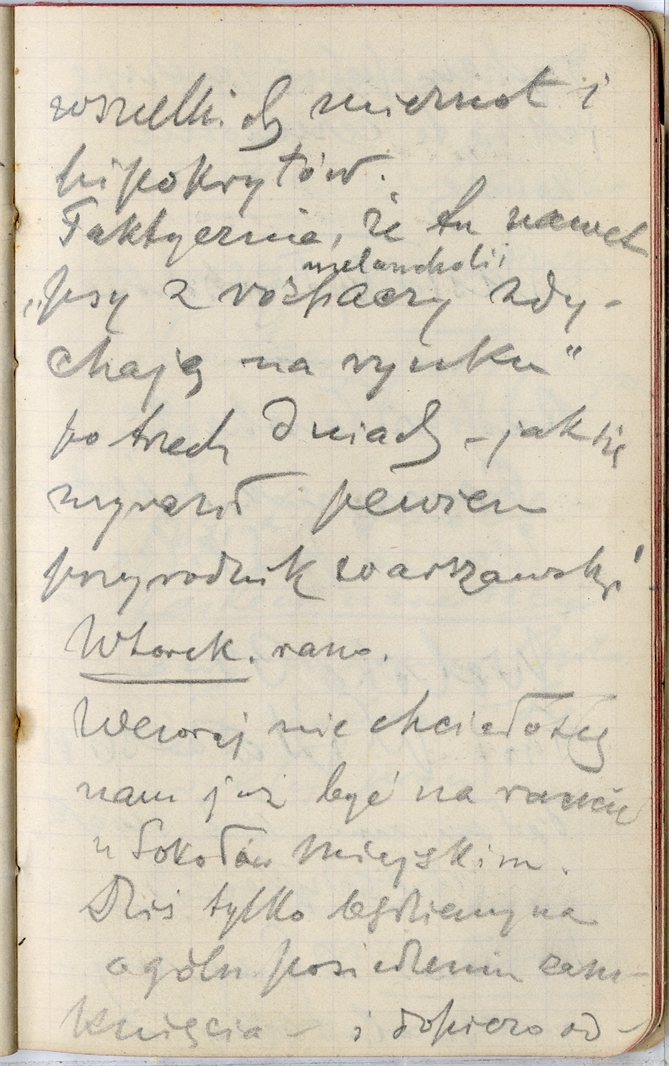 wszelkich miernot i
hipokrytów.
Faktycznie, że tu nawet
melancholii
„psy z rozpaczy zdy-
chają na rynku"
po trzech dniach – jak się
wyraził pewien
przyrodnik warszawski!
Wtorek. rano.
Wczoraj nie chciało się
nam już być na raucie
u Sokołów miejskim.
Dziś tylko będziemy na
ogóln posiedzeniu zam-
knięcia – i dopiero od-